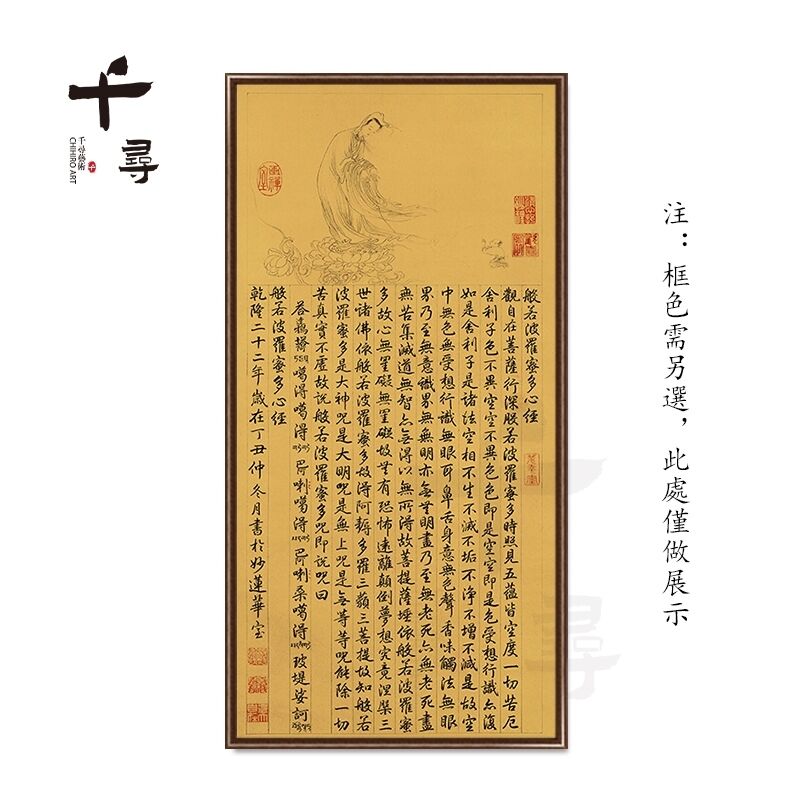 千尋
千尋藝術
CHIHIRO ART
注：框色需另選，此處僅做展示
般若波羅蜜多心經
觀自在菩薩行深般若波羅蜜多時照見五蘊皆空度一切苦厄
舍利子色不異空空不異色色即是空空即是色受想行識亦復
如是舍利子是諸法空相不生不滅不垢不淨不增不減是故空
中無色無受想行識無眼耳鼻舌身意無色聲香味觸法無眼
界乃至無意識界無無明亦無無明盡乃至無老死亦無老死盡
無苦集滅道無智亦無得以無所得故菩提薩埵依般若波羅蜜
多故心無罣礙無罣礙故無有恐怖遠離顛倒夢想究竟涅槃三
世諸佛依般若波羅蜜多故得阿耨多羅三藐三菩提故知般若
波羅蜜多是大神咒是大明咒是無上咒是無等等咒能除一切
苦真實不虛故說般若波羅蜜多咒即說咒曰
噶得噶得 喇噶得 喇桑噶得 玻堤娑訶
般若波羅蜜多心經
乾隆二十二年歲在丁丑仲冬月書於妙蓮華室
千尋